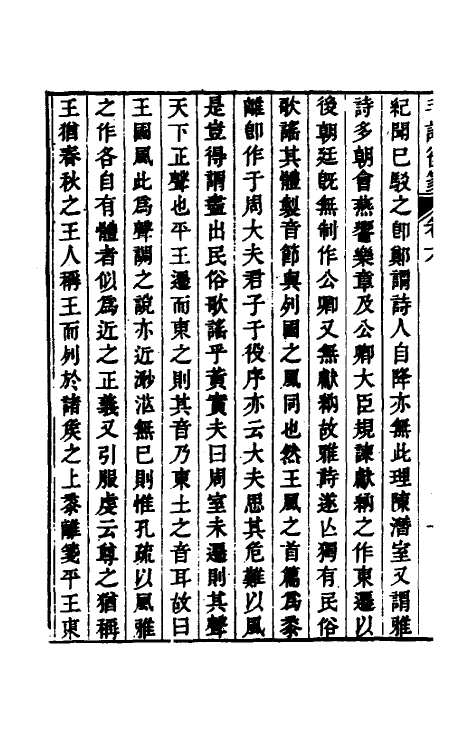 紀聞已駁之卽鄭謂詩人自降亦無此理陳潛室又謂雅
詩多朝會燕饗樂章及公卿大臣規諫獻納之作東遷以
後朝廷旣無制作公卿又無獻納故雅詩遂亾獨有民俗
歌謠其體製音節與列國之風同也然王風之首篇爲黍
離卽作于周大夫君子于役序亦云大夫思其危難以風
是豈得謂盡出民俗歌謠乎黃實夫曰周室未遷則其聲
天下正聲也平王遷而東之則其音乃東土之音耳故曰
王國風此爲聲調之說亦近渺茫無已則惟孔疏以風雅
之作各自有體者似爲近之正義又引服虔云尊之猶稱
王猶春秋之王人稱王而列於諸矦之上黍離箋平王東